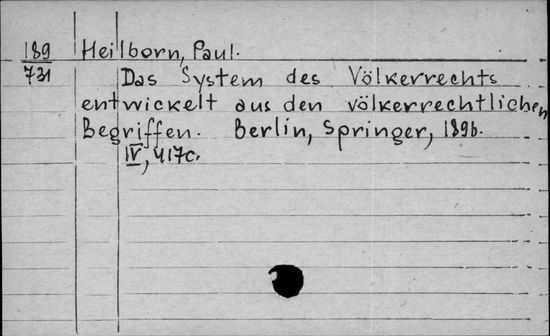 189 Heilborn, Paul.
731 Das System des Völkerrechts
entwickelt aus den völkerrechtlichen
Begriffen. Berlin, Springer, 1896.
IV, 417c.